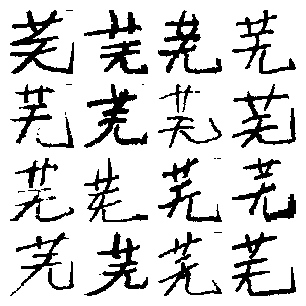 芜芜芜芜
芜芜芜芜
芜芜芜芜
芜芜芜芜